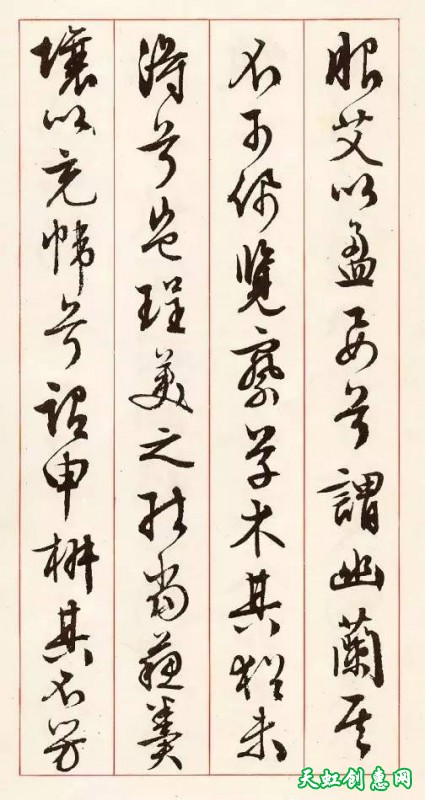 服艾以盈要兮謂幽蘭其
不可佩覽察草木其猶未
得兮豈珵美之能當蘇糞
壤以充幃兮謂申椒其不芳
天虹创惠网